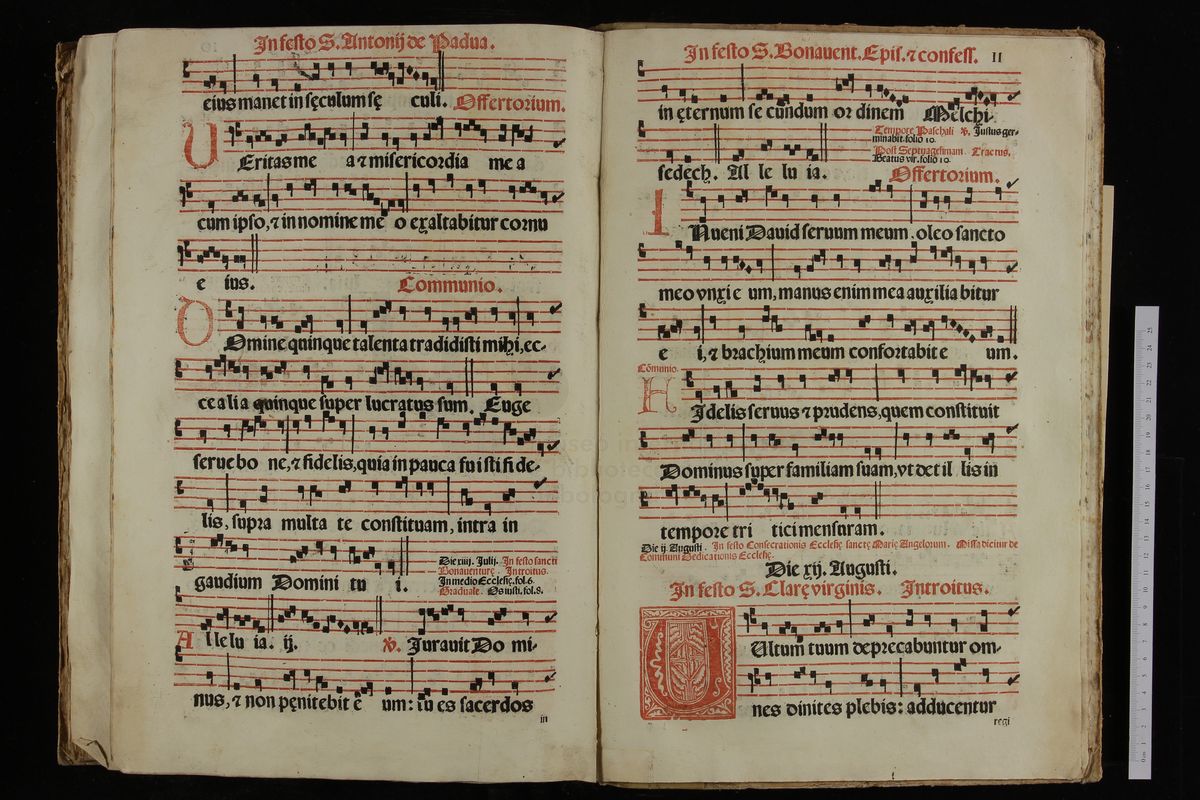 In festo S. Antonij de Padua.
eius manet in sęculum sę culi. Offertorium.
VEritas me a ⁊ misericordia me a
cum ipso, ⁊ in nomine me o exaltabitur cornu
e ius. Communio.
DOmine quinque talenta tradidisti mihi, ec-
ce alia quinque super lucratus sum. Euge
serue bo ne, ⁊ fidelis, quia in pauca fuisti fide-
lis, supra multa te constituam, intra in
gaudium Domini tu i.
Die xiiij. Julij. In festo sancti
Bonauenturę Introitus.
In medio Ecclesię. fol. 6.
Graduale. Os iusti. fol. 8.
Allelu ia. ij. ℣. Jurauit Do mi-
nus, ⁊ non pęnitebit e um: tu es sacerdos
in
In festo S. Bonauent. Epis. ⁊ confess. 11
in ęternum se cundum or dinem Melchi-
Tempore Paschali ℣. Justus ger-
minabit. folio 10.
Post Septuagesimam. Tractus.
Beatus vir. folio 10.
sedech. Al le lu ia. Offertorium.
INueni Dauid seruum meum. oleo sancto
meo vnxi e um, manus enim mea auxilia bitur
e i, ⁊ brachium meum confortabit e um.
Cōmunio.
FIdelis seruus ⁊ prudens, quem constituit
Dominus super familiam suam, vt det il lis in
tempore tri tici mensuram.
Die ij. Augusti. In festo Consecrationis Ecclesię sanctę Marię Angelorum. Missa dicitur de
Communi Dedicationis Ecclesię.
Die xij. Augusti.
In festo S. Clarę virginis. Introitus.
VUltum tuum deprecabuntur om-
nes diuites plebis: adducentur
regi